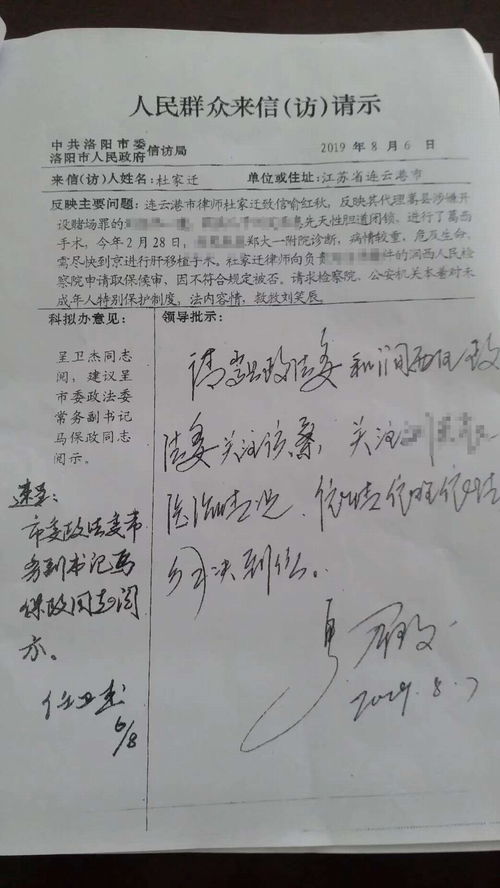 人民群众来信(访)请示
中共洛阳市委
洛阳市人民政府 信访局
2019 年 8 月 6 日
来信(访)人姓名: 杜家迁
单位或住址: 江苏省连云港市
反映主要问题: 连云港市律师杜家迁致信喻红秋, 反映其代理嵩县涉嫌开
设赌场罪的
先天性胆道闭锁, 进行了葛西
手术, 今年 2 月 28 日,
郑大一附院诊断, 病情较重, 危及生命,
需尽快到京进行肝移植手术。杜家迁律师向负责
件的涧西人民检
察院申请取保候审, 因不符合规定被否。请求检察院、公安机关本着对未
成年人特别保护制度, 法内容情, 救救刘笑辰。
科拟办意见:
呈卫杰同志
阅, 建议呈
市委政法委
常务副书记
马保政同志
阅示。
领导批示:
请嵩县政法委和涧西区政
法委关注该案, 关注
医治情况, 依法
到位。
2019.8.7
速呈:
市委政法委常
务副书记马
保政同志阅
示。
任卫杰
6/8